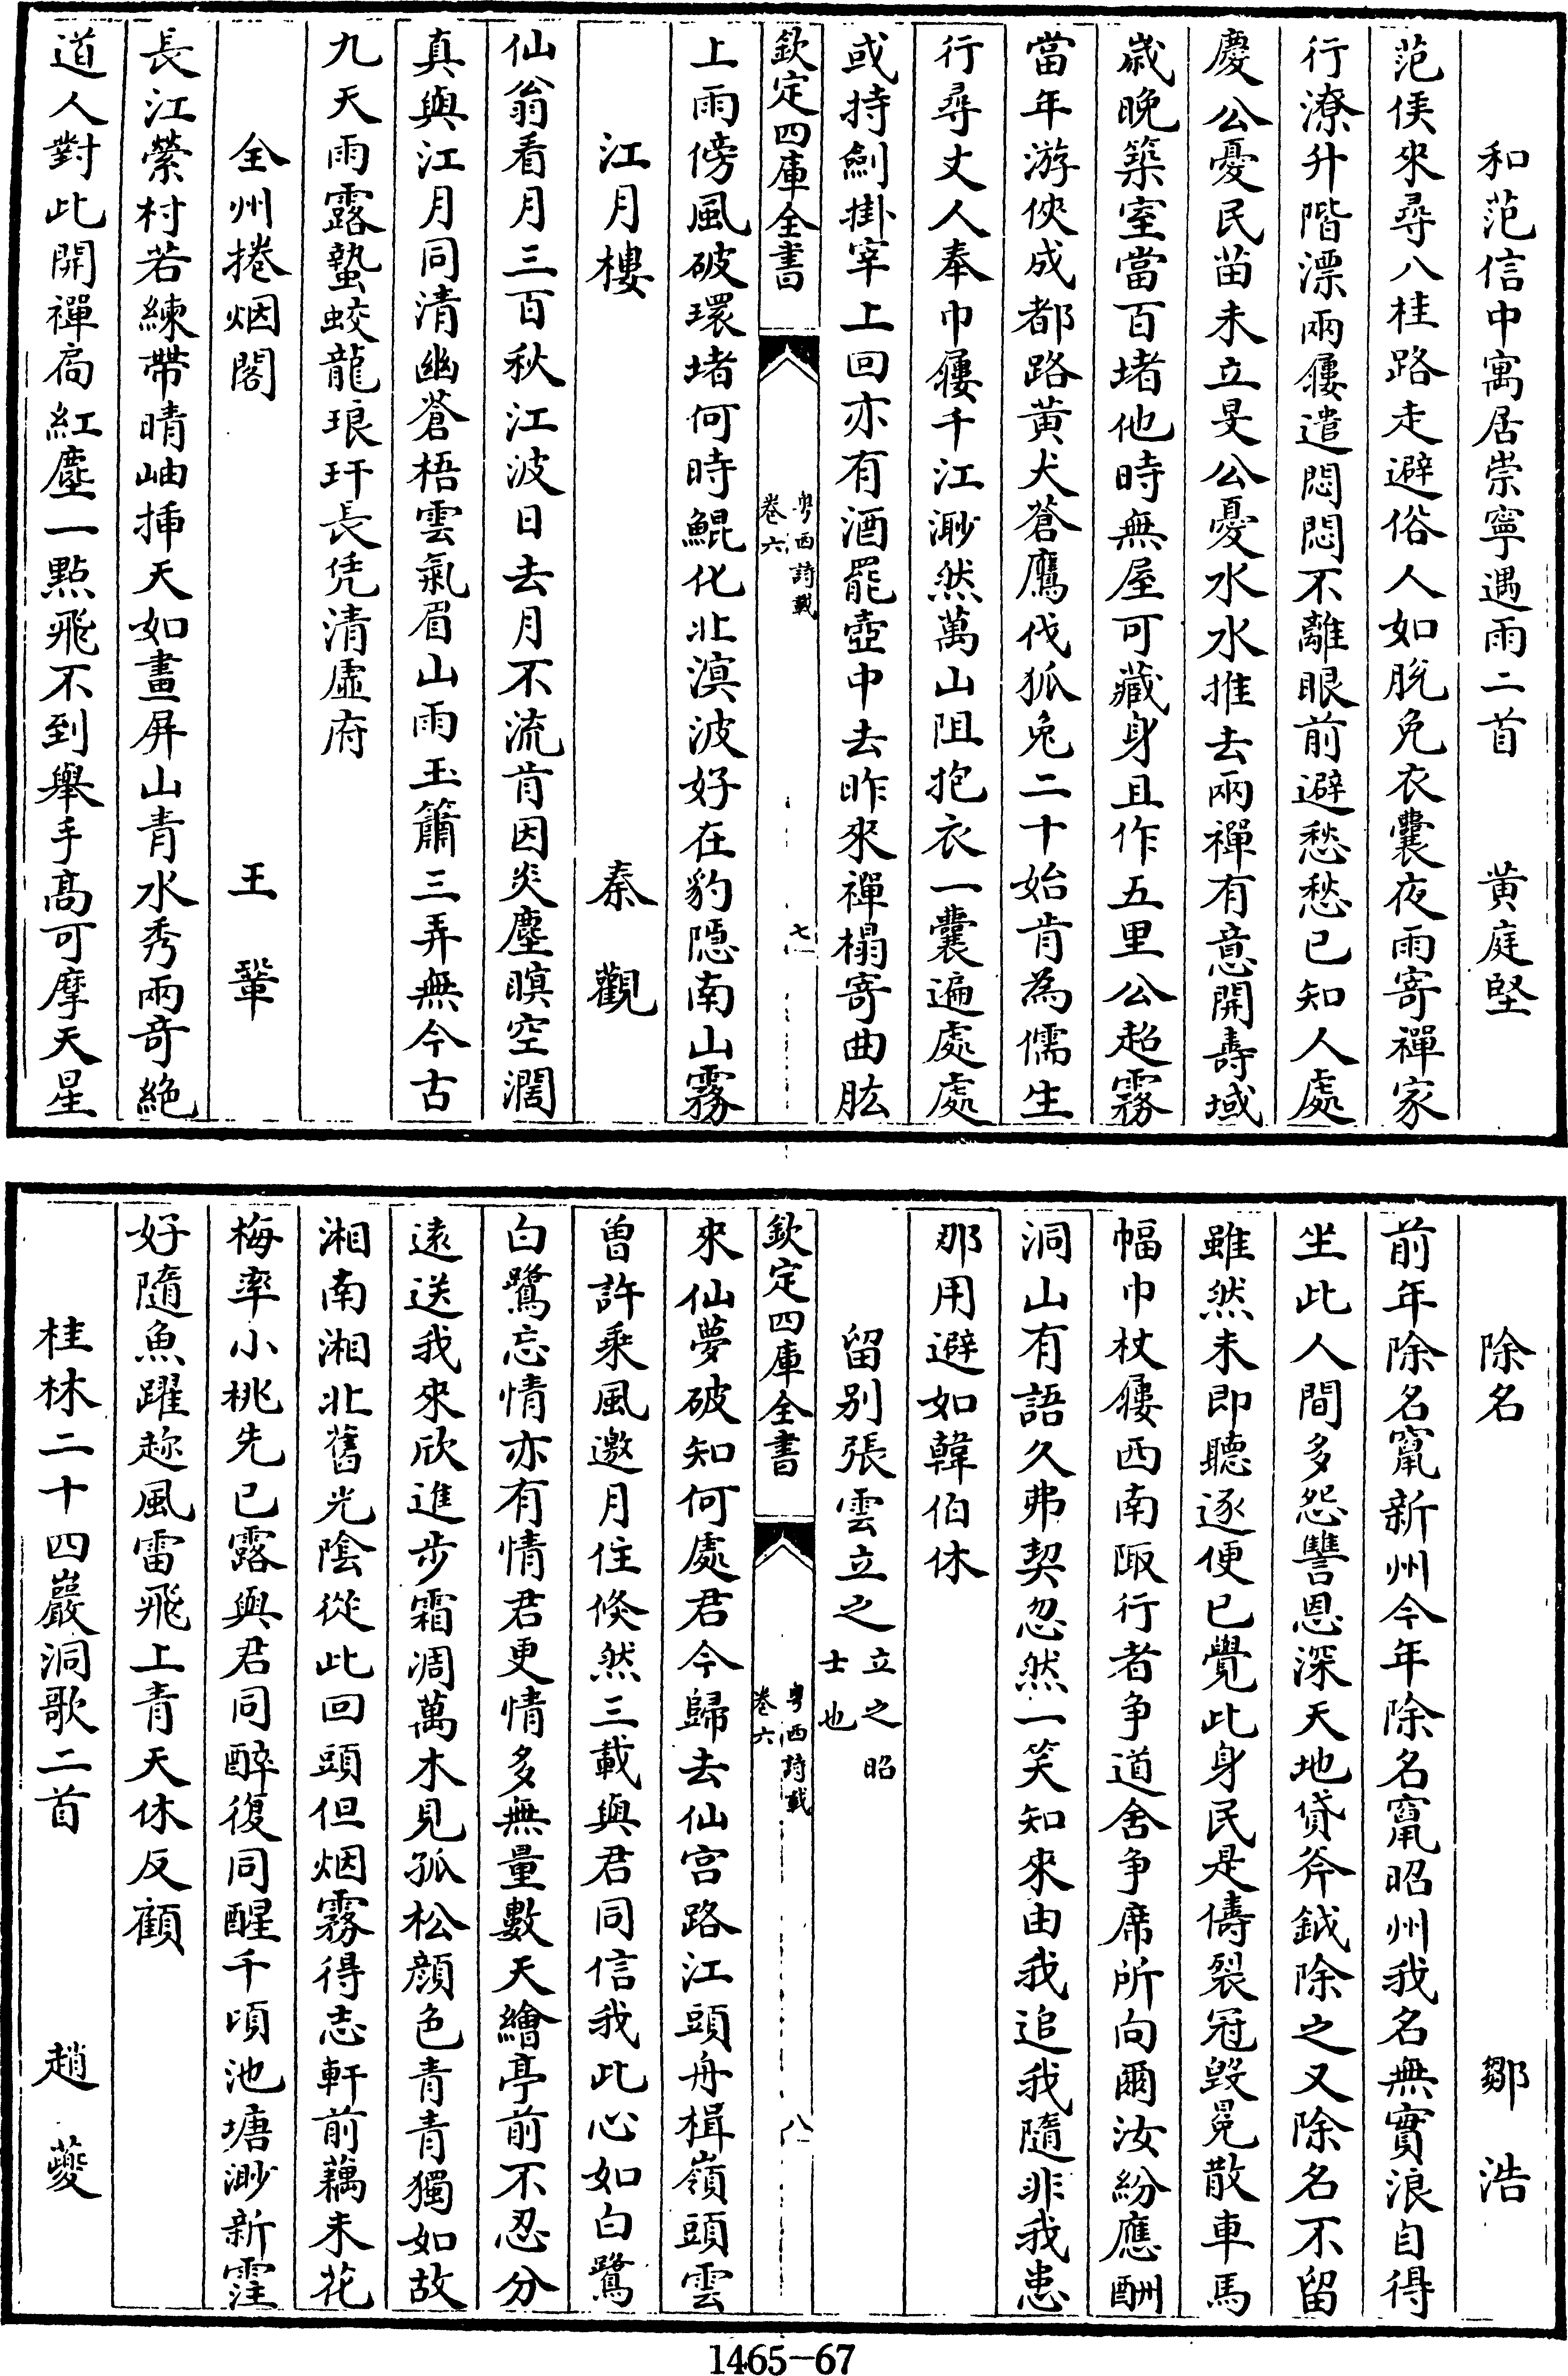 和范信中寓居崇寧遇雨二首　　黄庭堅
范侯來尋八桂路走避俗人如脱兔衣囊夜雨寄禪家
行潦升階漂兩屨遣悶悶不離眼前避愁愁已知人處
慶公憂民苗未立旻公憂水水推去兩禪有意開壽域
歲晚築室當百堵他時無屋可藏身且作五里公超霧
當年游俠成都路黄犬蒼鷹伐狐兔二十始肯為儒生
行尋丈人奉巾屨千江渺然萬山阻抱衣一囊遍處處
或持劍掛宰上回亦有酒罷壺中去昨來禪榻寄曲肱
欽定四庫全書　粤西詩載　卷六　七
上雨傍風破環堵何時鯤化北溟波好在豹隱南山霧
江月樓　　秦觀
仙翁看月三百秋江波日去月不流肯因炎塵暝空濶
真與江月同清幽蒼梧雲氣眉山雨玉簫三弄無今古
九天雨露蟄蛟龍琅玕長凭清虛府
全州捲烟閣　　王鞏
長江縈村若練帶晴岫揷天如畫屏山青水秀兩奇絶
道人對此開禪扃紅塵一點飛不到舉手高可摩天星
除名　　鄒浩
前年除名竄新州今年除名竄昭州我名無實浪自得
坐此人間多怨讐恩深天地貸斧鉞除之又除名不留
雖然未即聽逐便已覺此身民是儔裂冠毀冕散車馬
幅巾杖屨西南陬行者争道舍争席所向爾汝紛應酬
洞山有語久弗契忽然一笑知來由我追我隨非我患
那用避如韓伯休
留别張雲立之立之昭士也
欽定四庫全書　粤西詩載　卷六　八
來仙夢破知何處君今歸去仙宫路江頭舟楫嶺頭雲
曾許乘風邀月住倐然三載與君同信我此心如白鷺
白鷺忘情亦有情君更情多無量數天繪亭前不忍分
遠送我來欣進步霜凋萬木見孤松顔色青青獨如故
湘南湘北舊光陰從此回頭但烟霧得志軒前藕未花
梅率小桃先已露與君同醉復同醒千頃池塘渺新霔
好隨魚躍趂風雷飛上青天休反顧
桂林二十四巖洞歌二首　　趙夔
1465-67